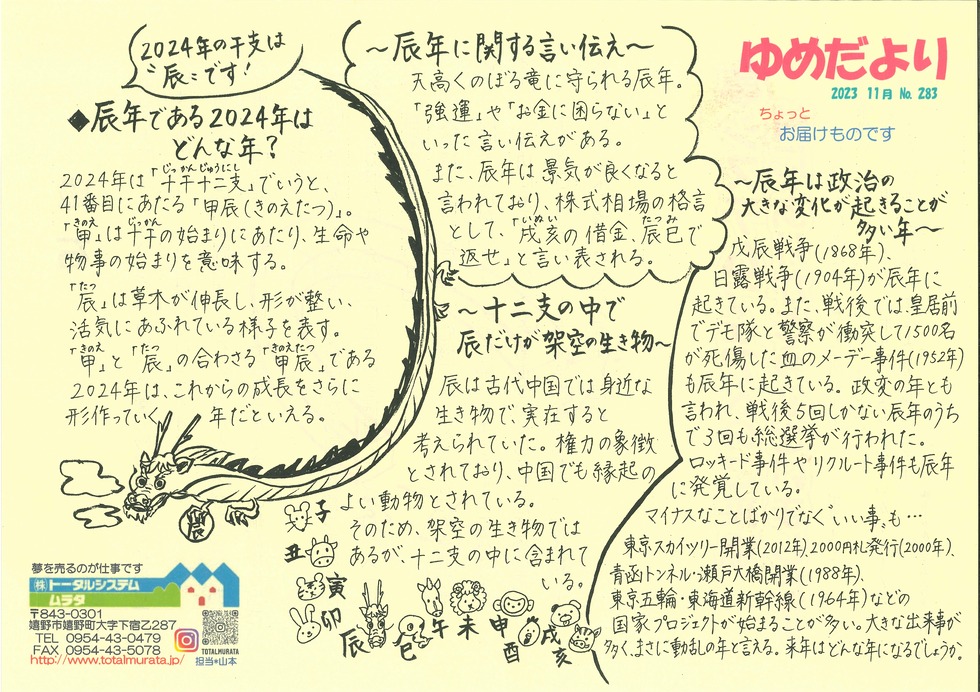 ゆめだより
2023 11月 No. 283
ちょっと
お届けものです
2024年の干支は
"辰"です!
◆辰年である2024年は
どんな年?
2024年は「十干十二支」でいうと、
じっかんじゅうにし
41番目にあたる「甲辰(きのえたつ)」。
「甲」は十干の始まりにあたり、生命や
きのえ じっかん
物事の始まりを意味する。
「辰」は草木が伸長し、形が整い、
たつ
活気にあふれている様子を表す。
「甲」と「辰」の合わさる「甲辰」である
きのえ たつ きのえたつ
2024年は、これからの成長をさらに
形作っていく 年だといえる。
辰
~辰年に関する言い伝え~
天高くのぼる竜に守られる辰年。
「強運」や「お金に困らない」と
いった言い伝えがある。
また、辰年は景気が良くなると
言われており、株式相場の格言
として、「戌亥の借金、辰巳で
いぬい たつみ
返せ」と言い表される。
~十二支の中で
辰だけが架空の生き物~
辰は古代中国では身近な
生き物で、実在すると
考えられていた。権力の象徴
とされており、中国でも縁起の
よい動物とされている。
そのため、架空の生き物では
あるが、十二支の中に含まれて
いる。
子
丑
寅
卯
辰
巳
午
未
申
酉
戌
亥
~辰年は政治の
大きな変化が起きることが
多い年~
戊辰戦争(1868年)、
日露戦争(1904年)が辰年に
起きている。また、戦後では、皇居前
でデモ隊と警察が衝突して1500名
が死傷した血のメーデー事件(1952年)
も辰年に起きている。政変の年とも
言われ、戦後5回しかない辰年のうち
で3回も総選挙が行われた。
ロッキード事件やリクルート事件も辰年
に発覚している。
マイナスなことばかりでなく"いい事"も…
東京スカイツリー開業(2012年)、2000円札発行(2000年)、
青函トンネル・瀬戸大橋開業(1988年)、
東京五輪・東海道新幹線(1964年)などの
国家プロジェクトが始まることが多い。大きな出来事が
多く、まさに動乱の年と言える。来年はどんな年になるでしょうか。
夢を売るのが仕事です
㈱トータルシステム
ムラタ
〒843-0301
嬉野市嬉野町大字下宿乙2​87
TEL 0954-43-0479
FAX 0954-43-5078
http://www.totalmurata.jp/
TOTALMURATA
担当●山本